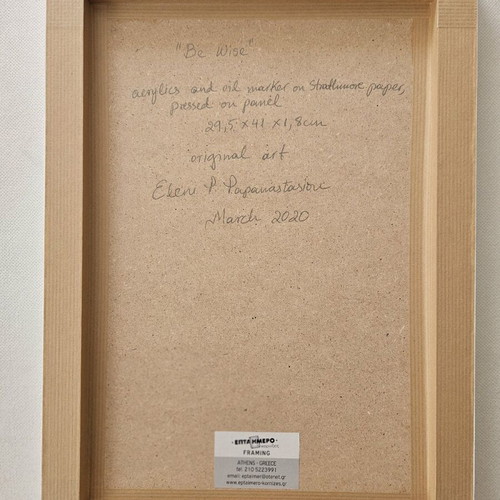 "Be Wise"
acrylics and oil marker on Strathmore paper,
pressed on panel
29,5 x 41 x 1,8cm
original art
Eleni P. Papanastasiou
March 2020
ΕΠΤΑΗΜΕΡΟ
FRAMING
ATHENS - GREECE
tel: 210 5223991